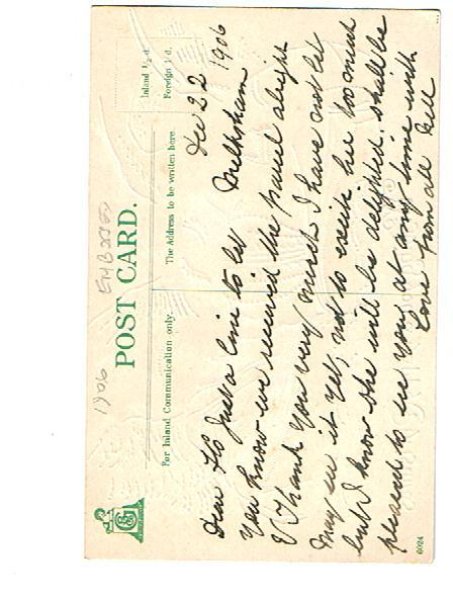 1906 EMBOSSED
POST CARD.
For Inland Communication only.
The Address to be written here.
Inland ½d.
Foreign 1d.
Dec 22 1906
Melksham
Dear Flo Just a line to let
you know we received the parcel alright
& Thank you very much I have not let
May see it yet, not to excite her too much
but I know she will be delighted. shall be
pleased to see you at any time with
Love from all Nell
6024